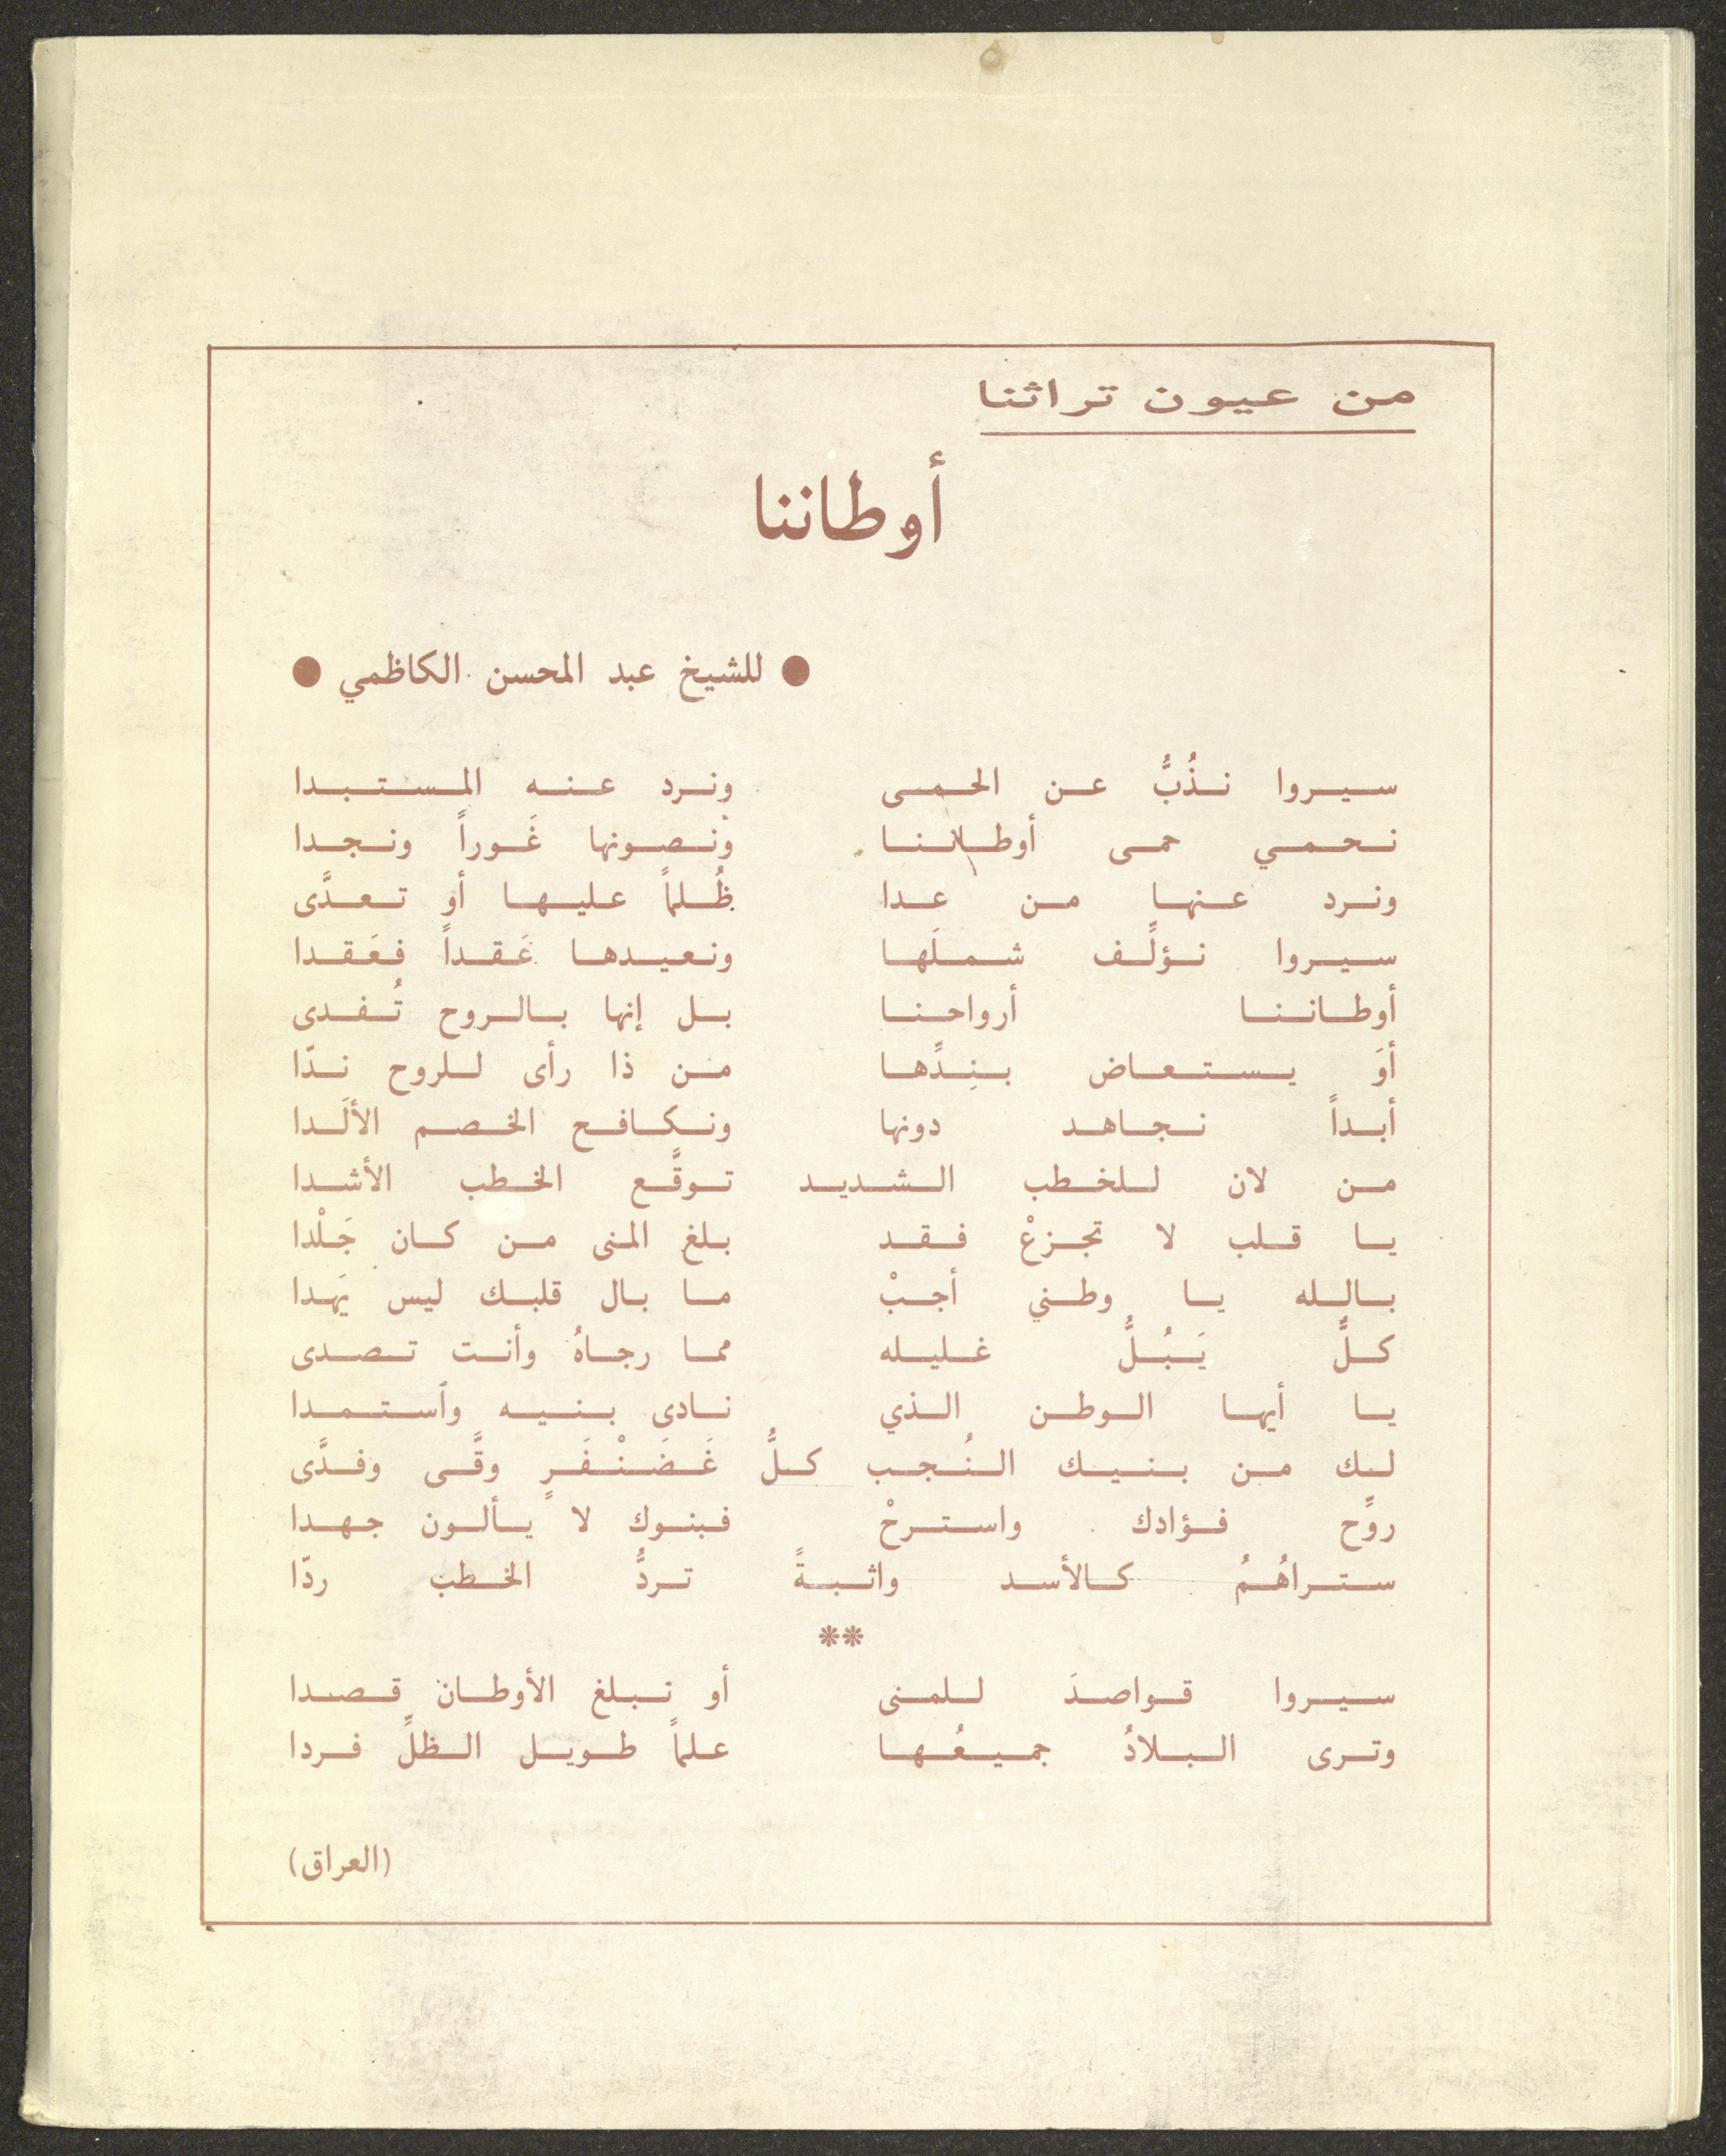 من عيون تراثنا
أوطاننا
● للشيخ عبد المحسن الكاظمي ●
سيروا نذُبُّ عن الحمى ونرد عنه المستبدا
نحمي حمى أوطاننا ونصونها غَوراً ونجدا
ونرد عنها من عدا ظُلماً عليها أو تعدَّى
سيروا نؤلِّف شملَها ونعيدها عَقداً فعَقدا
أوطاننا أرواحنا بل إنها بالروح تُفدى
أوَ يستعاض بنِدِّها من ذا رأى للروح ندّا
أبداً نجاهد دونها ونكافح الخصم الألَدا
من لان للخطب الشديد توقَّع الخطب الأشدا
يا قلب لا تجزعْ فقد بلغ المنى من كان جَلْدا
بالله يا وطني أجبْ ما بال قلبك ليس يَهدا
كلٌّ يَبُلُّ غليله مما رجاهُ وأنت تصدى
يا أيها الوطن الذي نادى بنيه وأستمدا
لك من بنيك النُجب كلُّ غَضَنْفَرٍ وقَّى وفدَّى
روِّح فؤادك واسترحْ فبنوك لا يألون جهدا
ستراهُمُ كالأسد واثبةً تردُّ الخطب ردّا
**
سيروا قواصدَ للمنى أو نبلغ الأوطان قصدا
وترى البلادُ جميعُها علماً طويل الظلِّ فردا
(العراق)